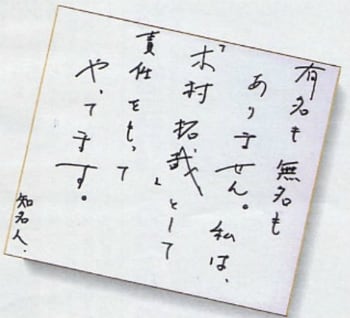 有名も無名も
ありません。私は、
「木村拓哉」として
責任をもって
やってます。
知名人.